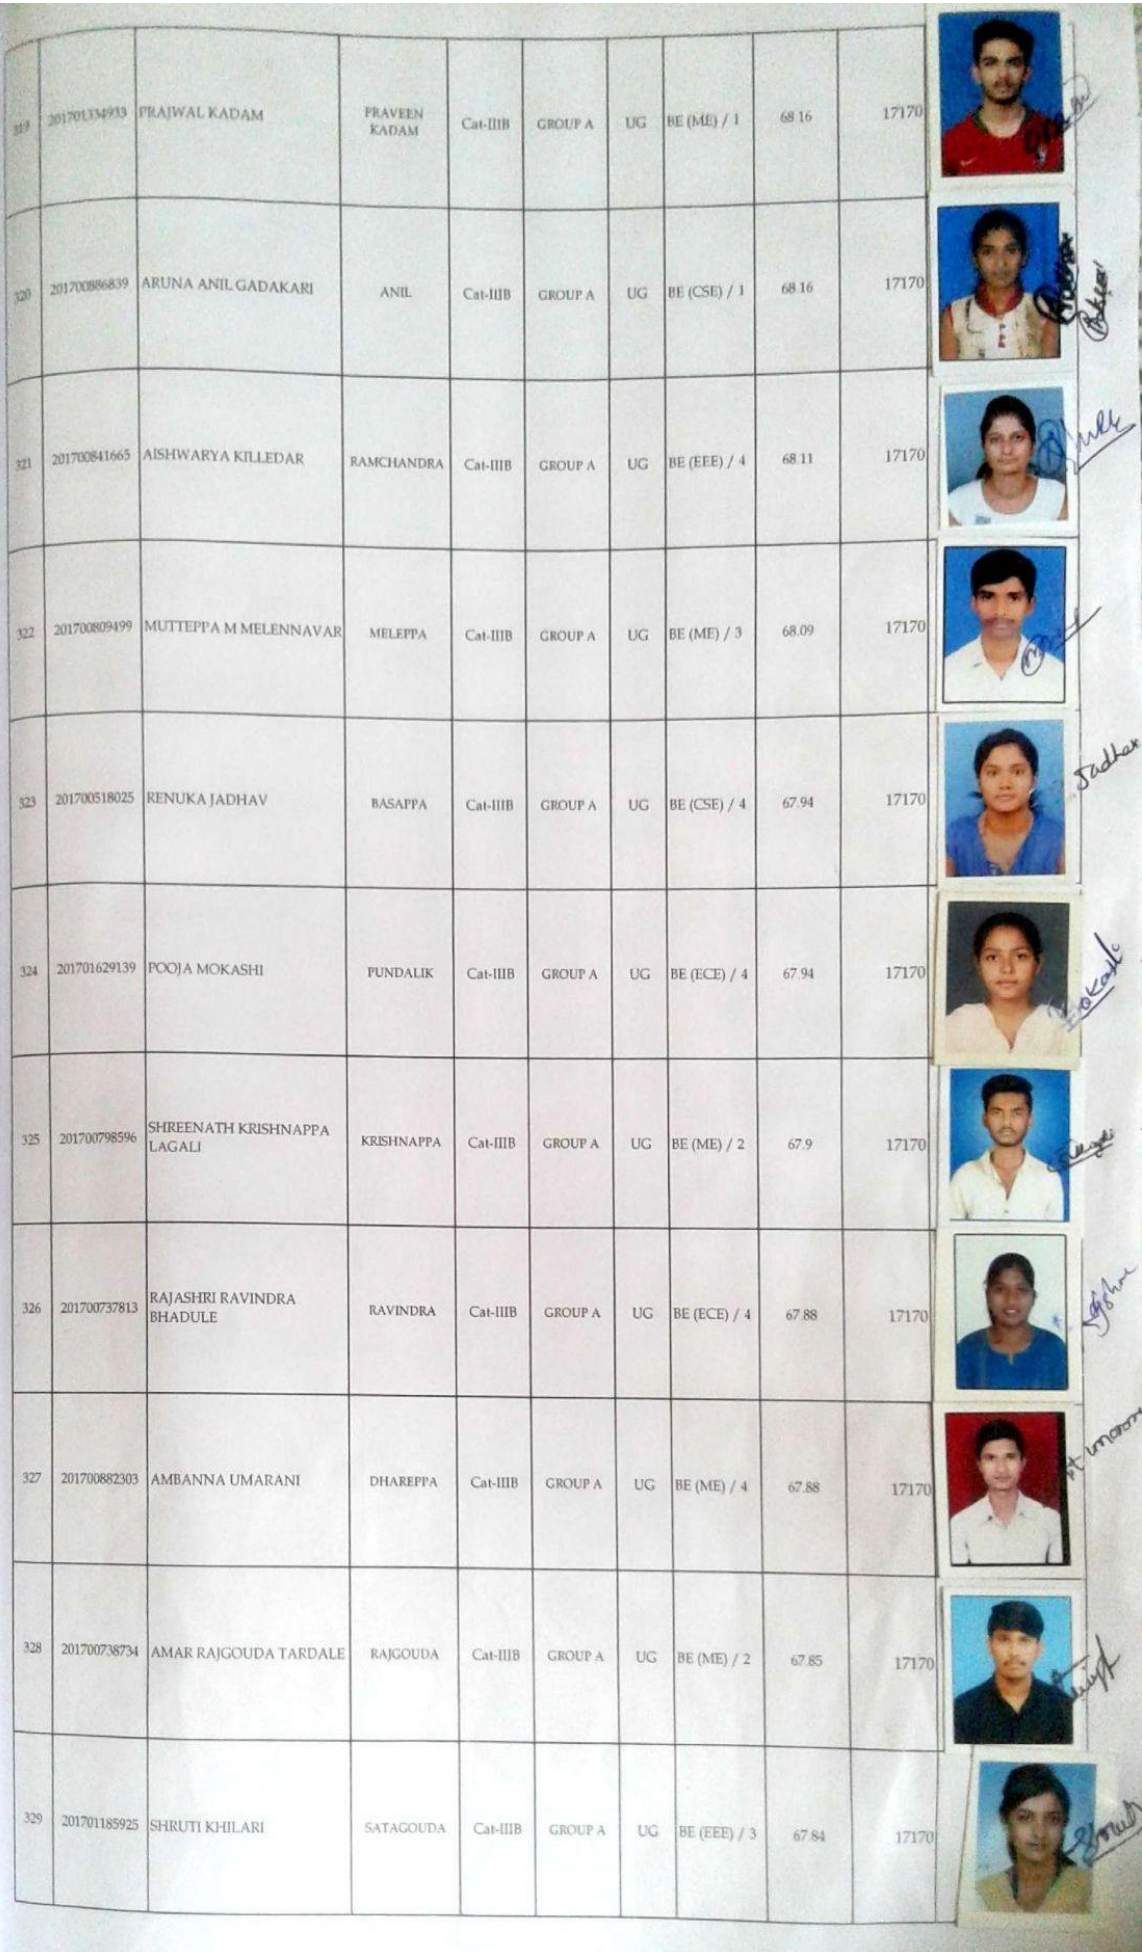 319 201701334933 PRAJWAL KADAM PRAVEEN KADAM Cat-IIIB GROUP A UG BE (ME) / 1 68.16 17170
320 201700886839 ARUNA ANIL GADAKARI ANIL Cat-IIIB GROUP A UG BE (CSE) / 1 68.16 17170
321 201700841665 AISHWARYA KILLEDAR RAMCHANDRA Cat-IIIB GROUP A UG BE (EEE) / 4 68.11 17170
322 201700809499 MUTTEPPA M MELENNAVAR MELEPPA Cat-IIIB GROUP A UG BE (ME) / 3 68.09 17170
323 201700518025 RENUKA JADHAV BASAPPA Cat-IIIB GROUP A UG BE (CSE) / 4 67.94 17170 Jadhav
324 201701629139 POOJA MOKASHI PUNDALIK Cat-IIIB GROUP A UG BE (ECE) / 4 67.94 17170
325 201700798596 SHREENATH KRISHNAPPA LAGALI KRISHNAPPA Cat-IIIB GROUP A UG BE (ME) / 2 67.9 17170
326 201700737813 RAJASHRI RAVINDRA BHADULE RAVINDRA Cat-IIIB GROUP A UG BE (ECE) / 4 67.88 17170
327 201700882303 AMBANNA UMARANI DHAREPPA Cat-IIIB GROUP A UG BE (ME) / 4 67.88 17170
328 201700738734 AMAR RAJGOUDA TARDALE RAJGOUDA Cat-IIIB GROUP A UG BE (ME) / 2 67.85 17170
329 201701185925 SHRUTI KHILARI SATAGOUDA Cat-IIIB GROUP A UG BE (EEE) / 3 67.84 17170